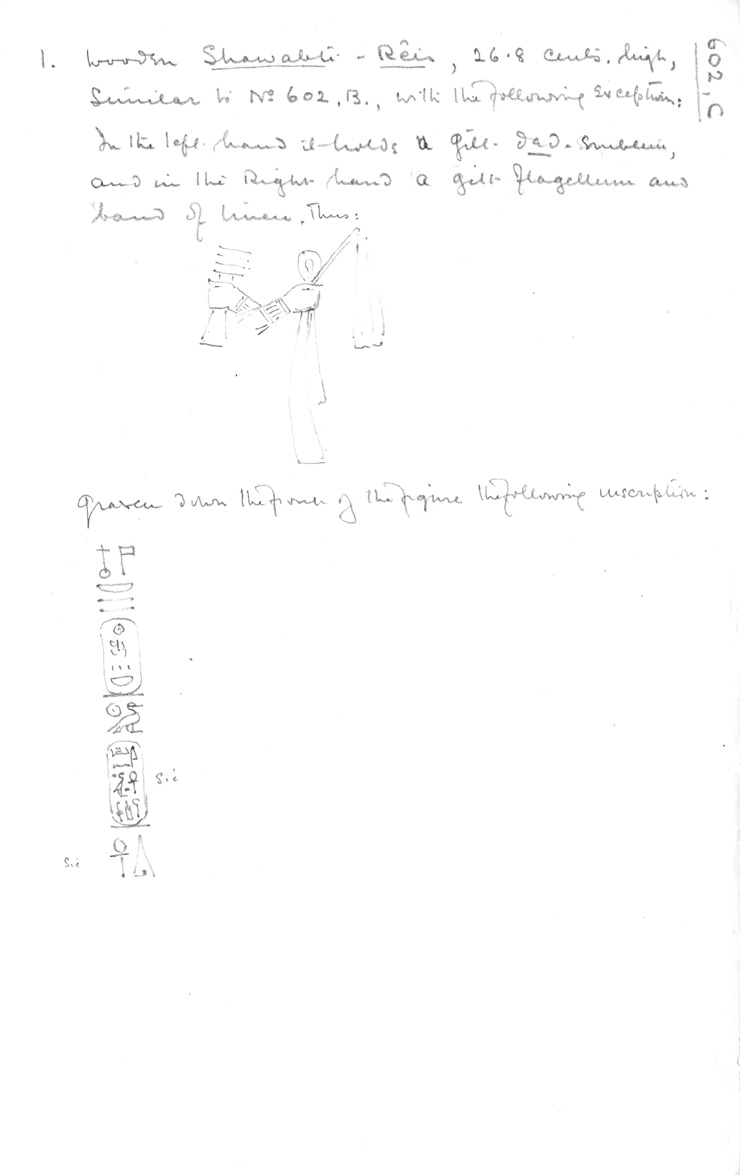 602, C
1. Wooden Shawabti-Rêis, 26.8 cents. high,
Similar to No 602, B., with the following exception:
In the left hand it holds a gilt ded-emblem,
and in the Right hand a gilt flagellum and
band of linen, Thus:
Graven down the front of the figure the following inscription:
sic
sic